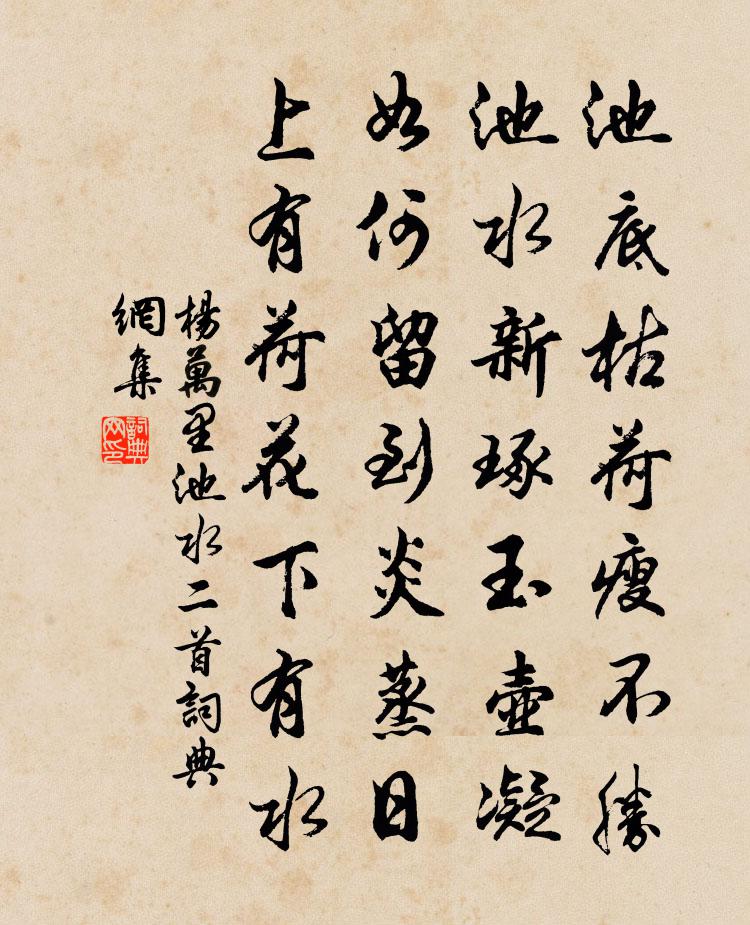 池底枯荷瘦不勝
池水新琢玉壺凝
如何留到炎蒸日
上有荷花下有水
楊萬里池水二首詞典
網集
詞典
网印